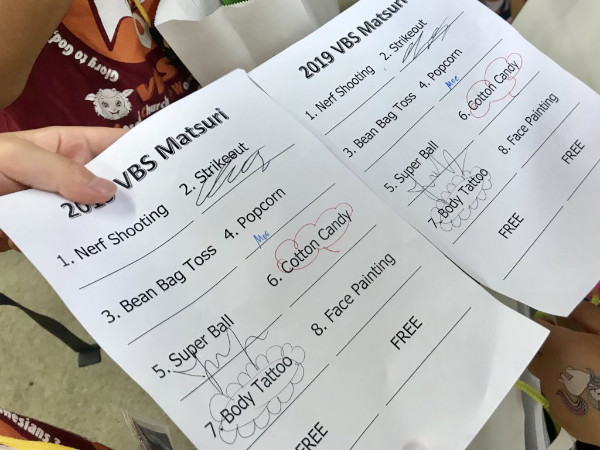 2019 VBS Matsuri
1. Nerf Shooting 2. Strikeout
3. Bean Bag Toss 4. Popcorn
Moe
5. Super Ball 6. Cotton Candy
7. Body Tattoo 8. Face Painting
FREE FREE
VBS Matsuri
1. Nerf Shooting 2. Strikeout
3. Bean Bag Toss 4. Popcorn
Moe
5. Super Ball 6. Cotton Candy
7. Body Tattoo 8. Face Painting
FREE FREE
Glory to God